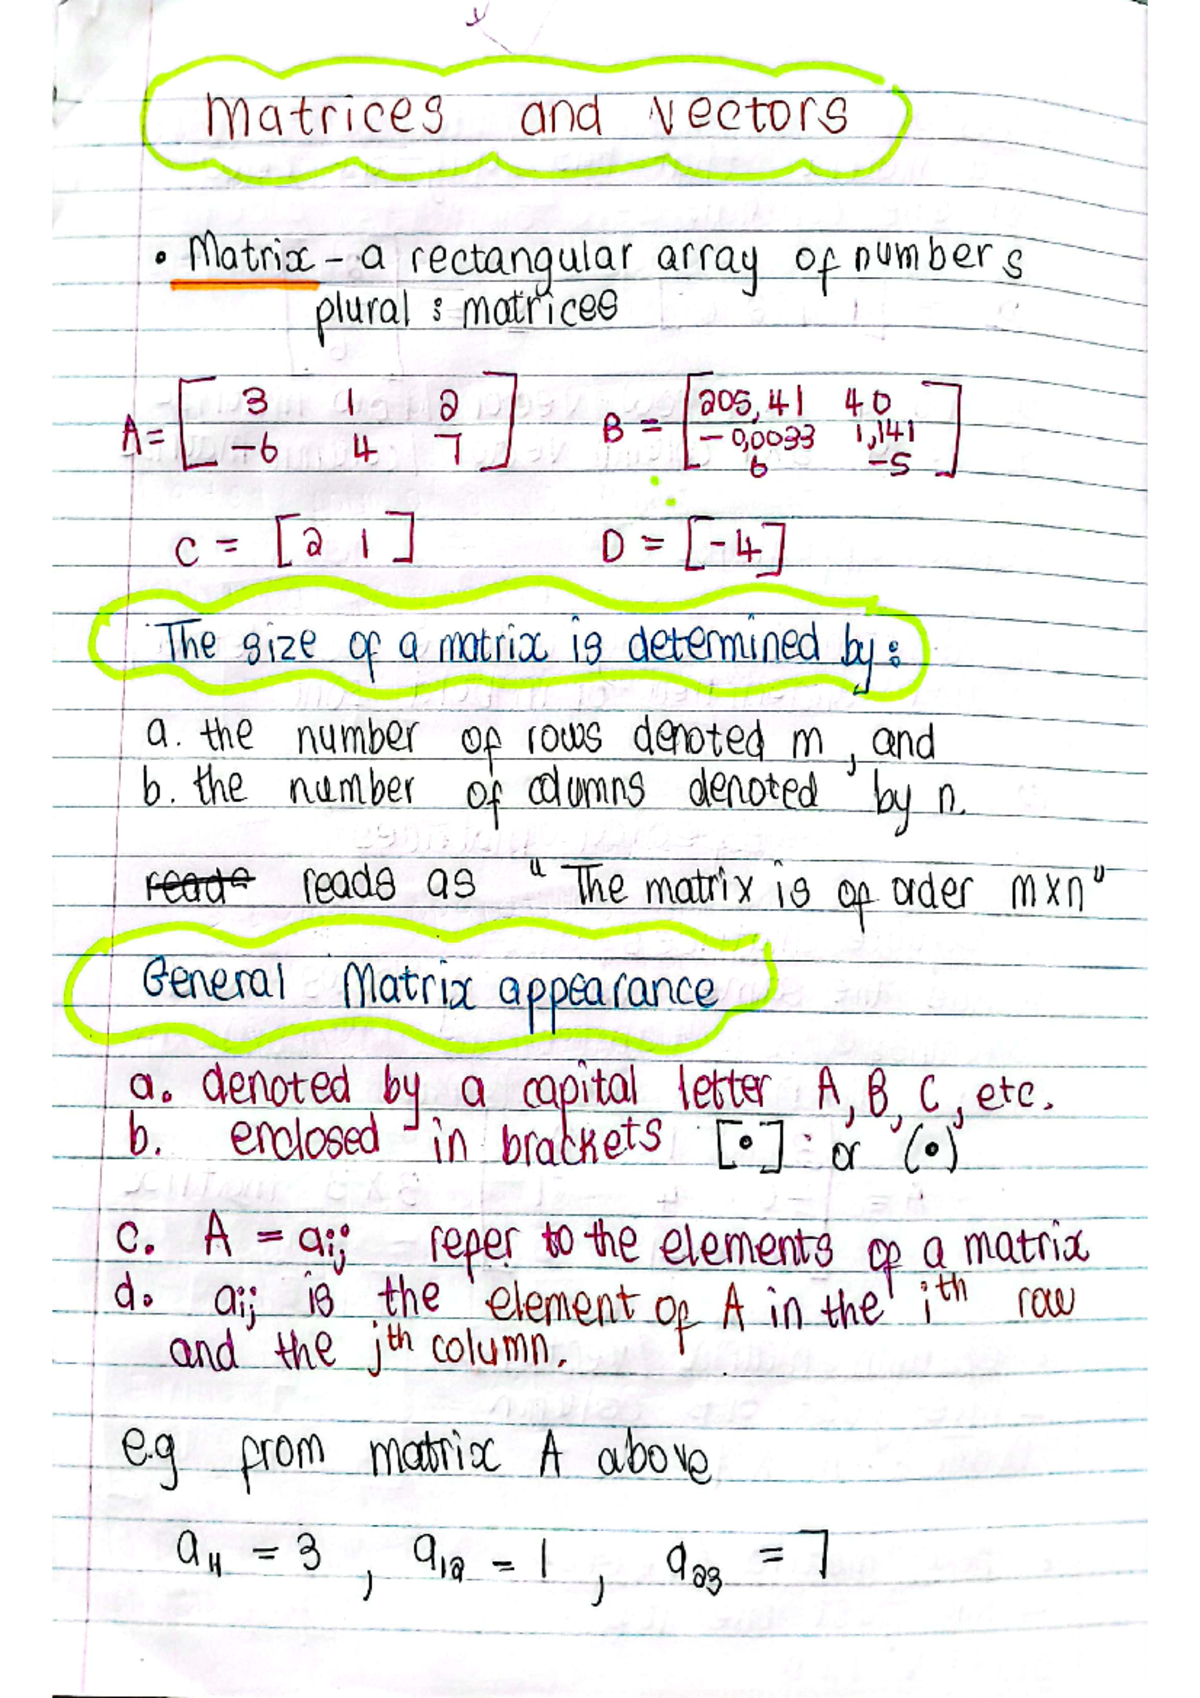 Matrices and Vectors
• Matrix - a rectangular array of numbers
plural : matrices
A = [ 3 1 2
-6 4 7 ]
B = [ 205,41 40
-0,0033 1,141
6 -5 ]
C = [ 2 1 ] D = [ -4 ]
The size of a matrix is determined by :
a. the number of rows denoted m, and
b. the number of columns denoted by n.
reads reads as "The matrix is of order m×n"
General Matrix appearance
a. denoted by a capital letter A, B, C, etc.
b. enclosed in brackets [•] or (•)
c. A = aij refer to the elements of a matrix
d. aij is the element of A in the ith row
and the jth column.
e.g from matrix A above
a11 = 3 , a12 = 1 , a23 = 7